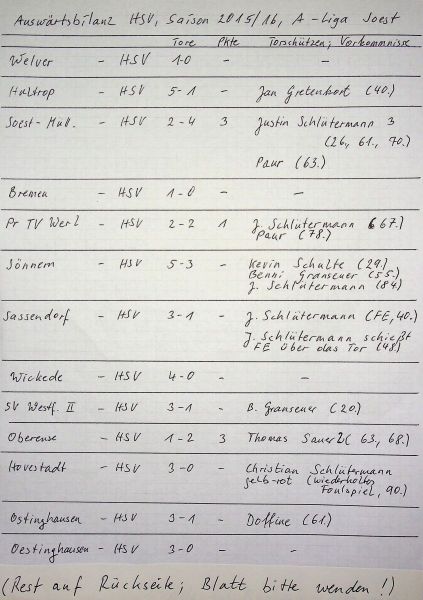 Auswärtsbilanz HSV, Saison 2015/16, A-Liga Soest
Tore Pkte Torschützen; Vorkommnisse
Welver - HSV 1-0 - -
Hultrop - HSV 5-1 - Jan Gretenkort (40.)
Soest-Müll. - HSV 2-4 3 Justin Schlütermann 3
(26., 61., 70.)
Paur (63.)
Bremen - HSV 1-0 - -
Pr TV Werl - HSV 2-2 1 J. Schlütermann (67.)
Paur (78.)
Sönnern - HSV 5-3 - Kevin Schulte (29.)
Benni Granseuer (55.)
J. Schlütermann (84)
Sassendorf - HSV 3-1 - J. Schlütermann (FE, 40.)
J. Schlütermann schießt
FE über das Tor (48)
Wickede - HSV 4-0 - -
SV Westf. II - HSV 3-1 - B. Granseuer (20.)
Oberense - HSV 1-2 3 Thomas Sauer 2 (63., 68.)
Hovestadt - HSV 3-0 - Christian Schlütermann
gelb-rot (wiederholtes
Foulspiel, 90.)
Ostinghausen - HSV 3-1 - Doffine (61.)
Oestinghausen - HSV 3-0 - -
(Rest auf Rückseite; Blatt bitte wenden!)